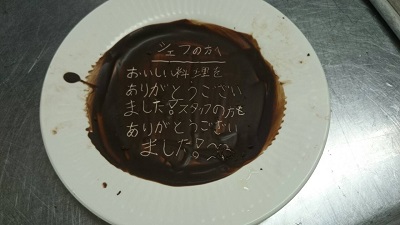 シェフの方へ
おいしい料理を
ありがとうござい
ました!スタッフの方も
ありがとうござい
ました!